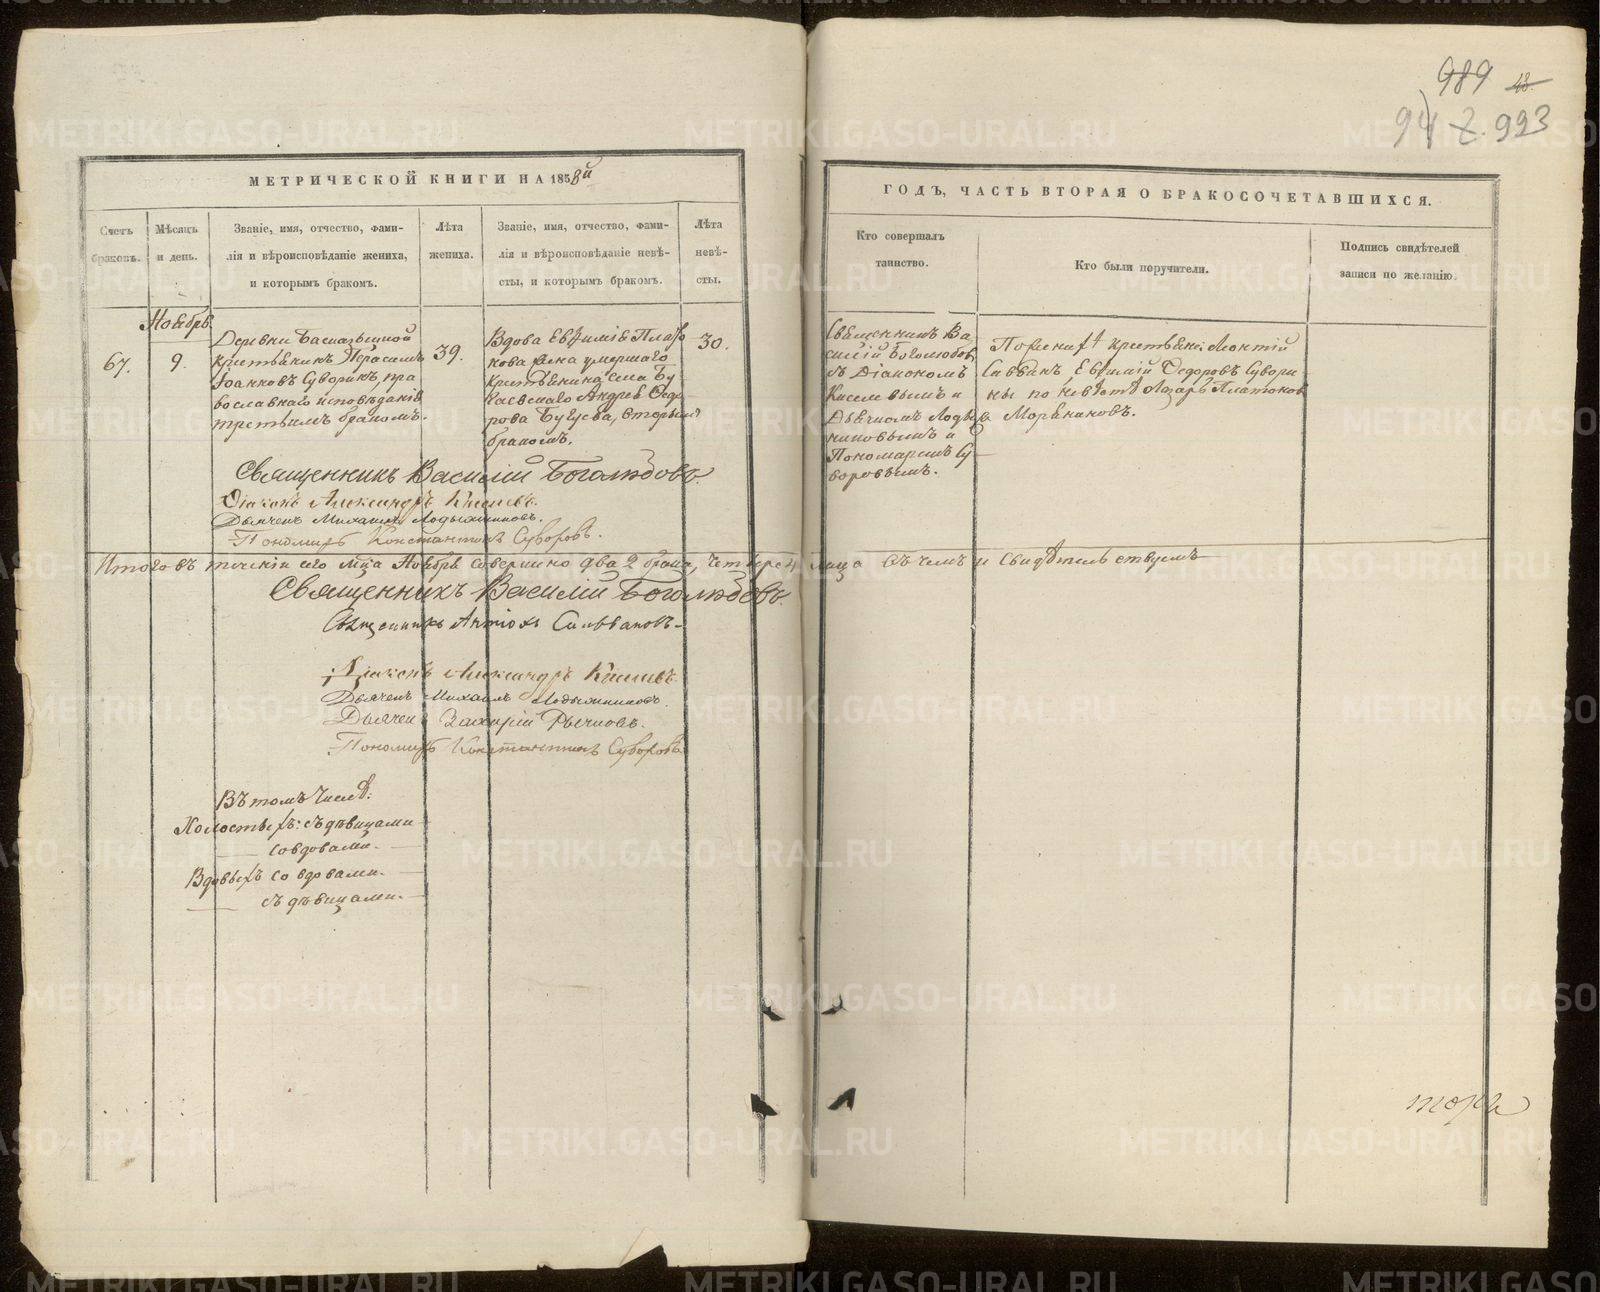 989 48.
94 2. 993
МЕТРИЧЕСКОЙ КНИГИ НА 1858й
ГОДЪ, ЧАСТЬ ВТОРАЯ О БРАКОСОЧЕТАВШИХСЯ.
Счетъ
браковъ.
Мѣсяцъ
и день.
Званіе, имя, отчество, фами-
лія и вѣроисповѣданіе жениха,
и которымъ бракомъ.
Лѣта
жениха.
Званіе, имя, отчество, фами-
лія и вѣроисповѣданіе невѣ-
сты, и которымъ бракомъ.
Лѣта
невѣ-
сты.
Кто совершалъ
таинство.
Кто были поручители.
Подпись свидѣтелей
записи по желанію.
Ноябрь
67.
9.
Деревни
крестьянинъ Герасимъ
Іоанновъ Суворинъ, пра
вославнаго исповѣданія
третьимъ бракомъ.
39.
Вдова Евфимія Плато
кова жена умершаго
крестьянина села Бу
каевскаго Андрея Ѳедо
рова Бугуева, вторымъ
бракомъ.
30.
Священникъ Ва
силій Боголюбов
съ Діакономъ
Киселевымъ и
Дьячкомъ Лодыж
никовымъ и
Пономаремъ Су
воровымъ.
По женихѣ крестьяне: Леонтій
Савванъ Евфимій Ѳедоровъ Сувори
ны по невѣстѣ Лазарь Платонов
Морениновъ.
Священникъ Василій Боголюбовъ
Діаконъ Александръ Киселевъ.
Дьячекъ Михаилъ Лодыжниковъ.
Пономарь Константинъ Суворовъ.
Итого въ теченіи сего м-ца Ноября совершено два 2 брака, четыре 4 лица въ чемъ и свидѣтельствуемъ
Священникъ Василій Боголюбовъ
Священникъ Антіохъ Сильвановъ
Діаконъ Александръ Киселевъ
Дьячекъ Михаилъ Лодыжниковъ.
Дьячекъ Захарій Рычковъ.
Пономарь Константинъ Суворовъ
Въ томъ числѣ:
Холостыхъ: съ дѣвицами
со вдовами.
Вдовыхъ со вдовами.
съ дѣвицами.
METRIKI.GASO-URAL.RU